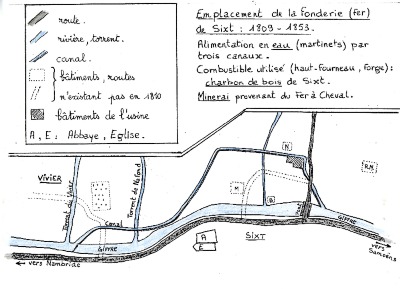 route.
rivière, torrent.
canal.
bâtiments, routes
n'existant pas en 1810
bâtiments de l'usine
A, E : Abbaye, Eglise.
Emplacement de la Fonderie (Fer)
de Sixt : 1809 - 1853.
Alimentation en eau (martinets) par
trois canaux.
Combustible utilisé (haut-fourneau, forge) :
charbon de bois de Sixt.
Minerai provenant du Fer à Cheval.
VIVIER
Torrent du Vivier
Torrent de Nafond
Canal
GIFFRE
GIFFRE
SIXT
A
E
H
RM
B
vers Nambride
vers
Samoëns